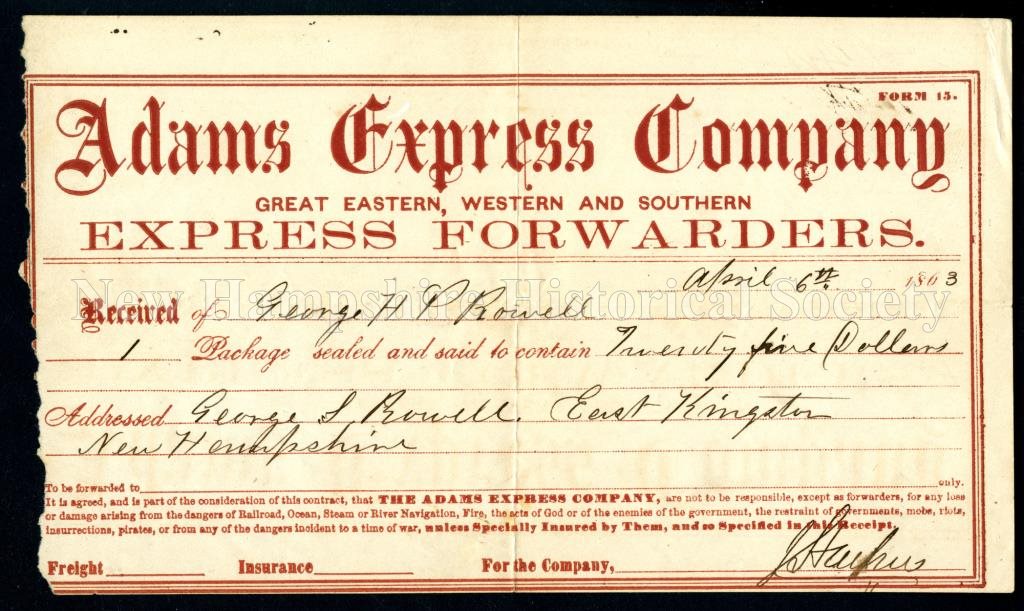 FORM 15.
Adams Express Company
GREAT EASTERN, WESTERN AND SOUTHERN
EXPRESS FORWARDERS.
April 6th 1863
New Hampshire Historical Society
Received of George H P Rowell
1 Package sealed and said to contain Twenty five Dollars
Addressed George S Rowell. East Kingston
New Hampshire
To be forwarded to only.
It is agreed, and is part of the consideration of this contract, that THE ADAMS EXPRESS COMPANY, are not to be responsible, except as forwarders, for any loss
or damage arising from the dangers of Railroad, Ocean, Steam or River Navigation, Fire, the acts of God or of the enemies of the government, the restraint of governments, mobs, riots,
insurrections, pirates, or from any of the dangers incident to a time of war, unless Specially Insured by Them, and so Specified in this Receipt.
Freight Insurance For the Company,